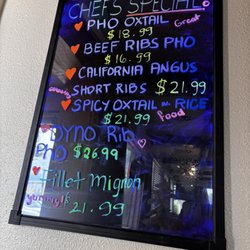 CHEFS SPECIAL.
PHO OXTAIL Great
$18.99
BEEF RIBS PHO
$16.99
CALIFORNIA ANGUS
SHORT RIBS $21.99
SPICY OXTAIL w RICE
$21.99 food
DYNO Rib
PHO $26.99
Fillet Mignon
yummy!!
21.99